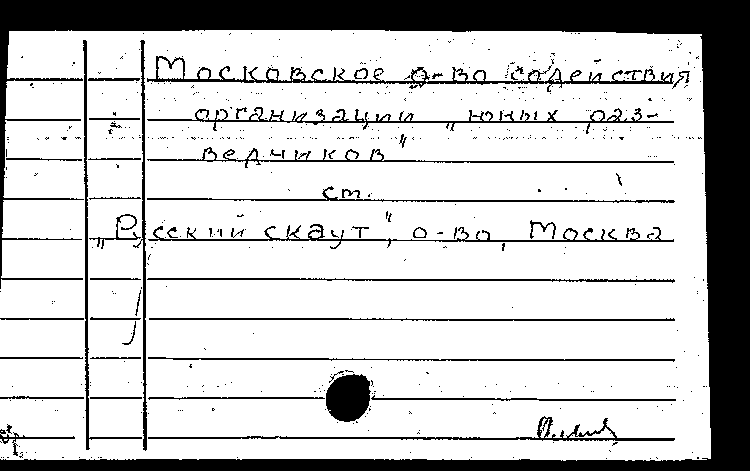 Московское о-во содействия
организации „юных раз-
ведчиков"
см.
„Русский скаут", о-во, Москва